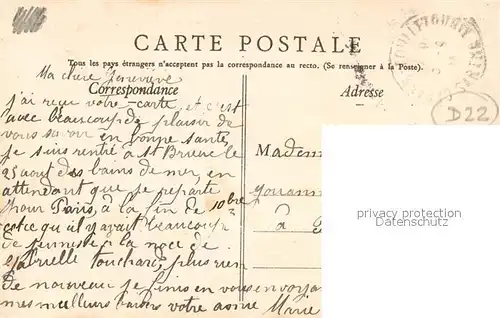 CARTE POSTALE
Tous les pays étrangers n'acceptent pas la correspondance au recto. (Se renseigner à la Poste).
Ma chère Geneviève
Correspondance
j'ai reçu votre carte, et c'est
avec beaucoup de plaisir de
vous savoir en bonne santé
je suis rentré à St Brieuc le
25 aout des bains de mer en
attendant que je reparte
pour Paris, à la fin de 10bre
ce qu'il y avait beaucoup
de à la noce de
Gabrielle plus rien
de nouveau je finis en vous envoyant
mes meilleurs baisers votre amie Marie
Adresse
D22
Madem
à
privacy protection
Datenschutz